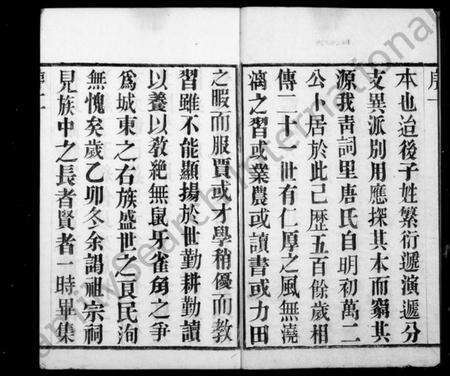 序一
本也迨後子姓繁衍遞演遞分
支異派別用應探其本而窮其
源我青詞里唐氏自明初萬二
公卜居於此已歷五百餘歲相
傳二十一世有仁厚之風無澆
漓之習或業農或讀書或力田
之暇而服賈或才學稍優而教
習雖不能顯揚於世勤耕勤讀
以養以教絕無鼠牙雀角之爭
為城東之右族盛世之良民洵
無愧矣歲乙卯冬余謁祖宗祠
見族中之長者賢者一時畢集
序二
FamilySearch International